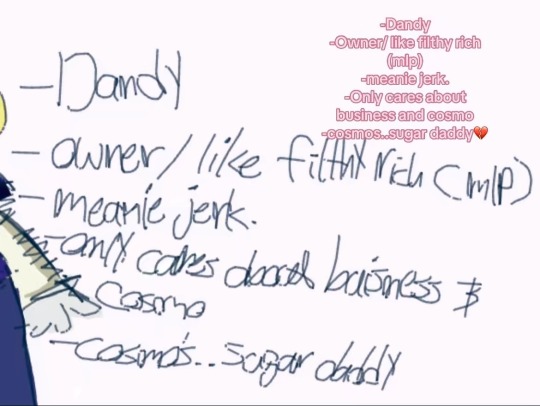 -Dandy
-Owner/ like filthy rich
(mlp)
-meanie jerk.
-Only cares about
business and cosmo
-cosmos..sugar daddy💔
-Dandy
- owner/like filthy rich (mlp)
- meanie jerk.
-only cares about buisness &
Cosmo
-cosmo's..sugar daddy